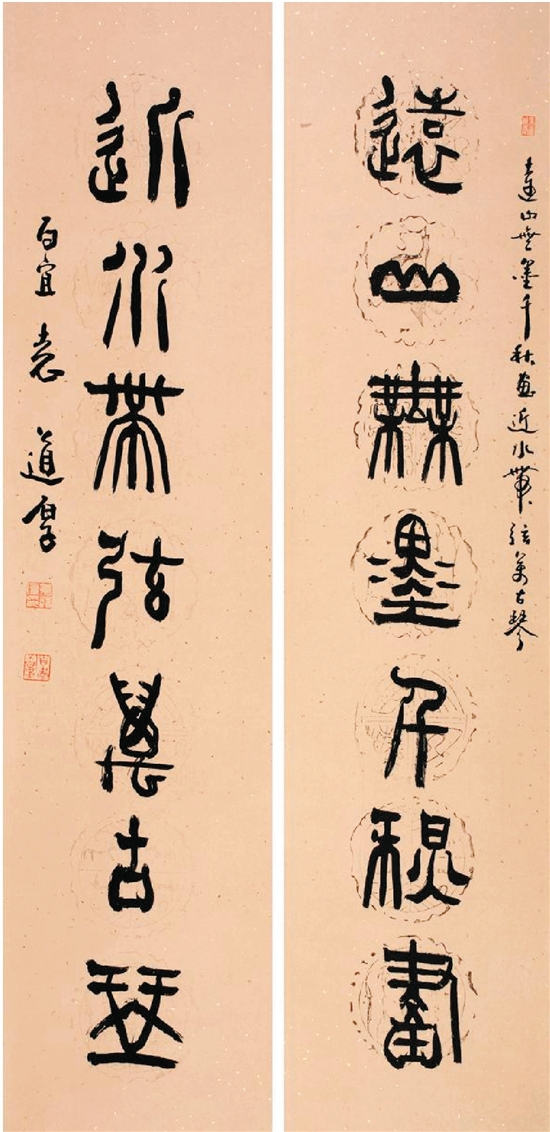 遠山無墨千秋畫近水帶弦萬古琴
遠山無墨千秋畫
近水帶弦萬古琴
百宜袁道厚